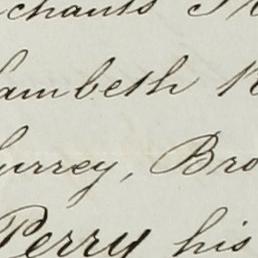 chants
ambeth
urrey, Bro
Perry his